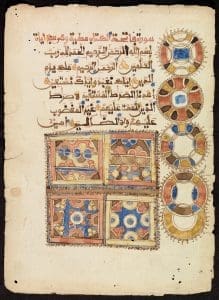 سورة فاتحة الكتاب مكية
بسم الله الرحمن الرحيم الحمد لله رب
العلمين الرحمن الرحيم ملك يوم
الدين اياك نعبد واياك نستعين
اهدنا الصرط المستقيم صرط
الذين انعمت عليهم غير المغضوب
عليهم ولا الضالين